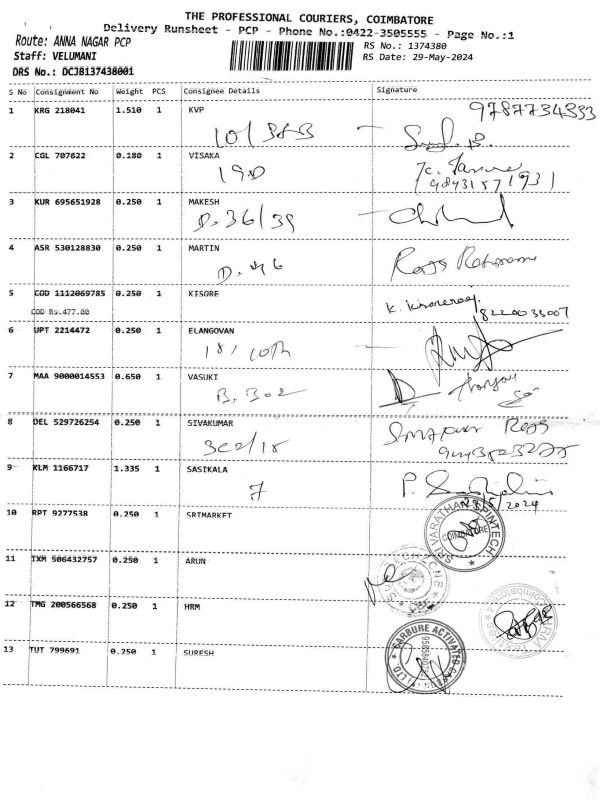 THE PROFESSIONAL COURIERS, COIMBATORE
Delivery Runsheet - PCP - Phone No.:0422-3505555 - Page No.:1
Route: ANNA NAGAR PCP
RS No.: 1374380
Staff: VELUMANI
RS Date: 29-May-2024
DRS No.: DCJB137438001
S No Consignment No Weight PCS Consignee Details Signature
1 KRG 218041 1.510 1 KVP 9787734333
10/383
2 CGL 707622 0.180 1 VISAKA
190
(9843157193)
3 KUR 695651928 0.250 1 MAKESH
D. 36/39
4 ASR 530128830 0.250 1 MARTIN
D. 46
5 COD 1112069785 0.250 1 KISORE
COD Rs.477.00 K. Kisoreraj. 8220033007
6 UPT 2214472 0.250 1 ELANGOVAN
18/10th
7 MAA 9000014553 0.650 1 VASUKI
B. 302
8 DEL 529726254 0.250 1 SIVAKUMAR
302/18
9 KLM 1166717 1.335 1 SASIKALA
7
29/5/2024
10 RPT 9277538 0.250 1 SRIMARKET
SRI NARATHAN SPINTECH
COIMBATORE
11 TXM 506432757 0.250 1 ARUN
12 TMG 200566568 0.250 1 HRM
13 TUT 799691 0.250 1 SURESH
CARBURE ACTIVATED